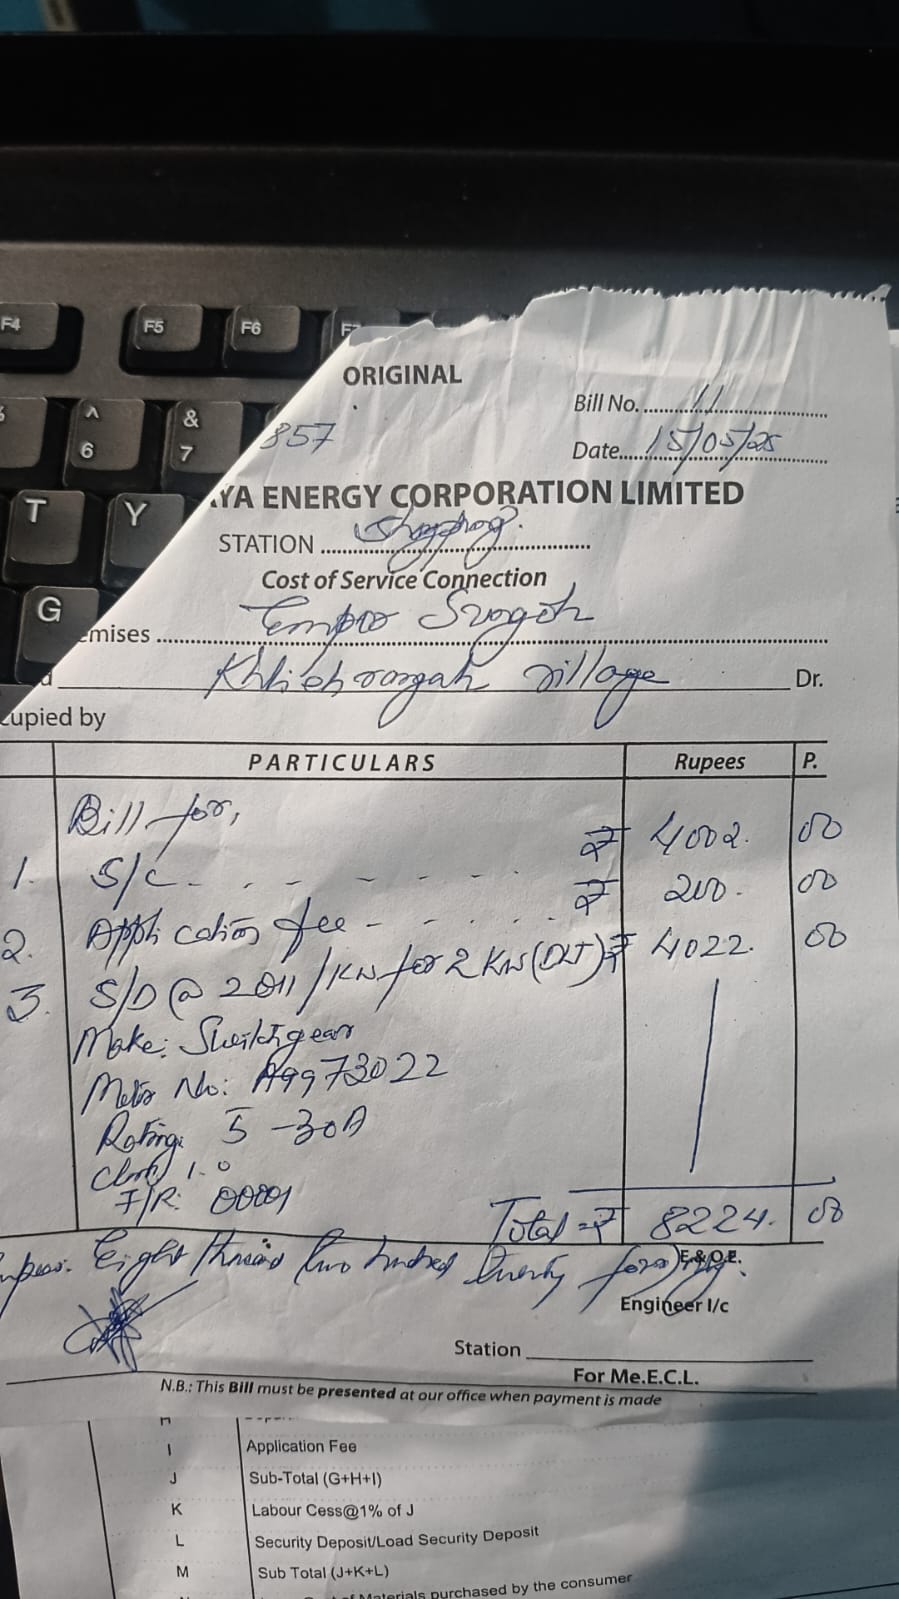 F4 F5 F6 F7
^ 6 & 7
T Y
G
ORIGINAL
Bill No. 11
857
Date 15/05/25
AYA ENERGY CORPORATION LIMITED
STATION
Cost of Service Connection
emises
Khliehrangah village Dr.
cupied by
PARTICULARS Rupees P.
Bill for,
1. S/C - - - - - - ₹ 4002. 00
2. Application fee - - - - - ₹ 200. 00
3. S/D @ 2011/KW for 2 KW (DLT) ₹ 4022. 00
Make:
Meter No: A9973022
Rating: 5 -30A
1.0
I/R: 00001
Total = ₹ 8224. 00
Eight thousand two hundred twenty four
E.&O.E.
Engineer I/c
Station
For Me.E.C.L.
N.B.: This Bill must be presented at our office when payment is made
H
I Application Fee
J Sub-Total (G+H+I)
K Labour Cess@1% of J
L Security Deposit/Load Security Deposit
M Sub Total (J+K+L)
of Materials purchased by the consumer